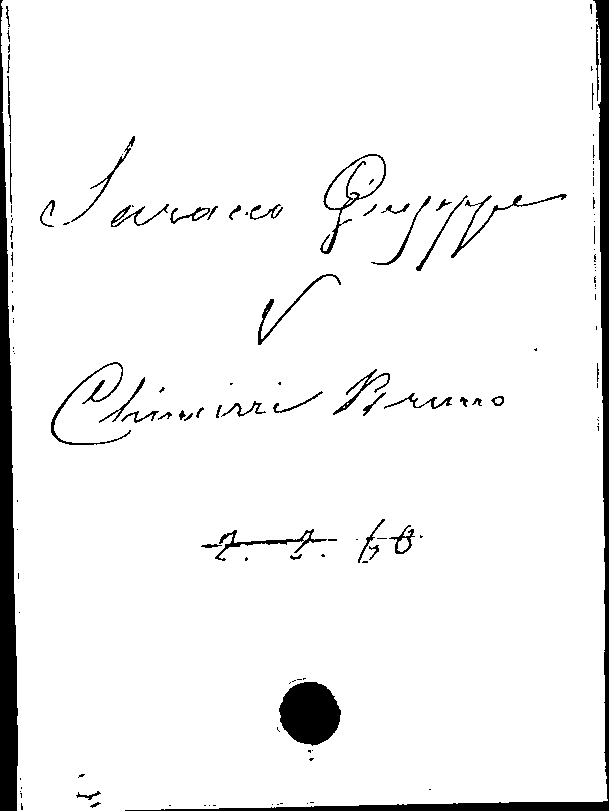 Saracco Giuseppe
V
Chimirri Bruno
2. 2. 60